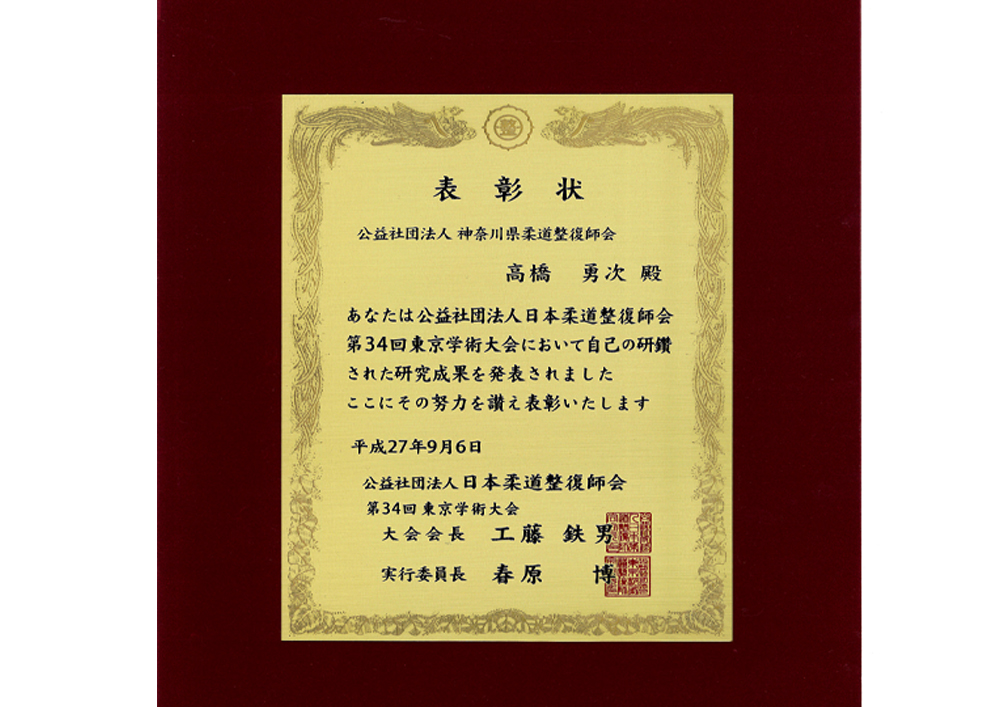 整
表彰状
公益社団法人 神奈川県柔道整復師会
高橋 勇次 殿
あなたは公益社団法人日本柔道整復師会
第34回東京学術大会において自己の研鑽
された研究成果を発表されました
ここにその努力を讃え表彰いたします
平成27年9月6日
公益社団法人日本柔道整復師会
第34回 東京学術大会
大会会長 工藤 鉄男
実行委員長 春原 博